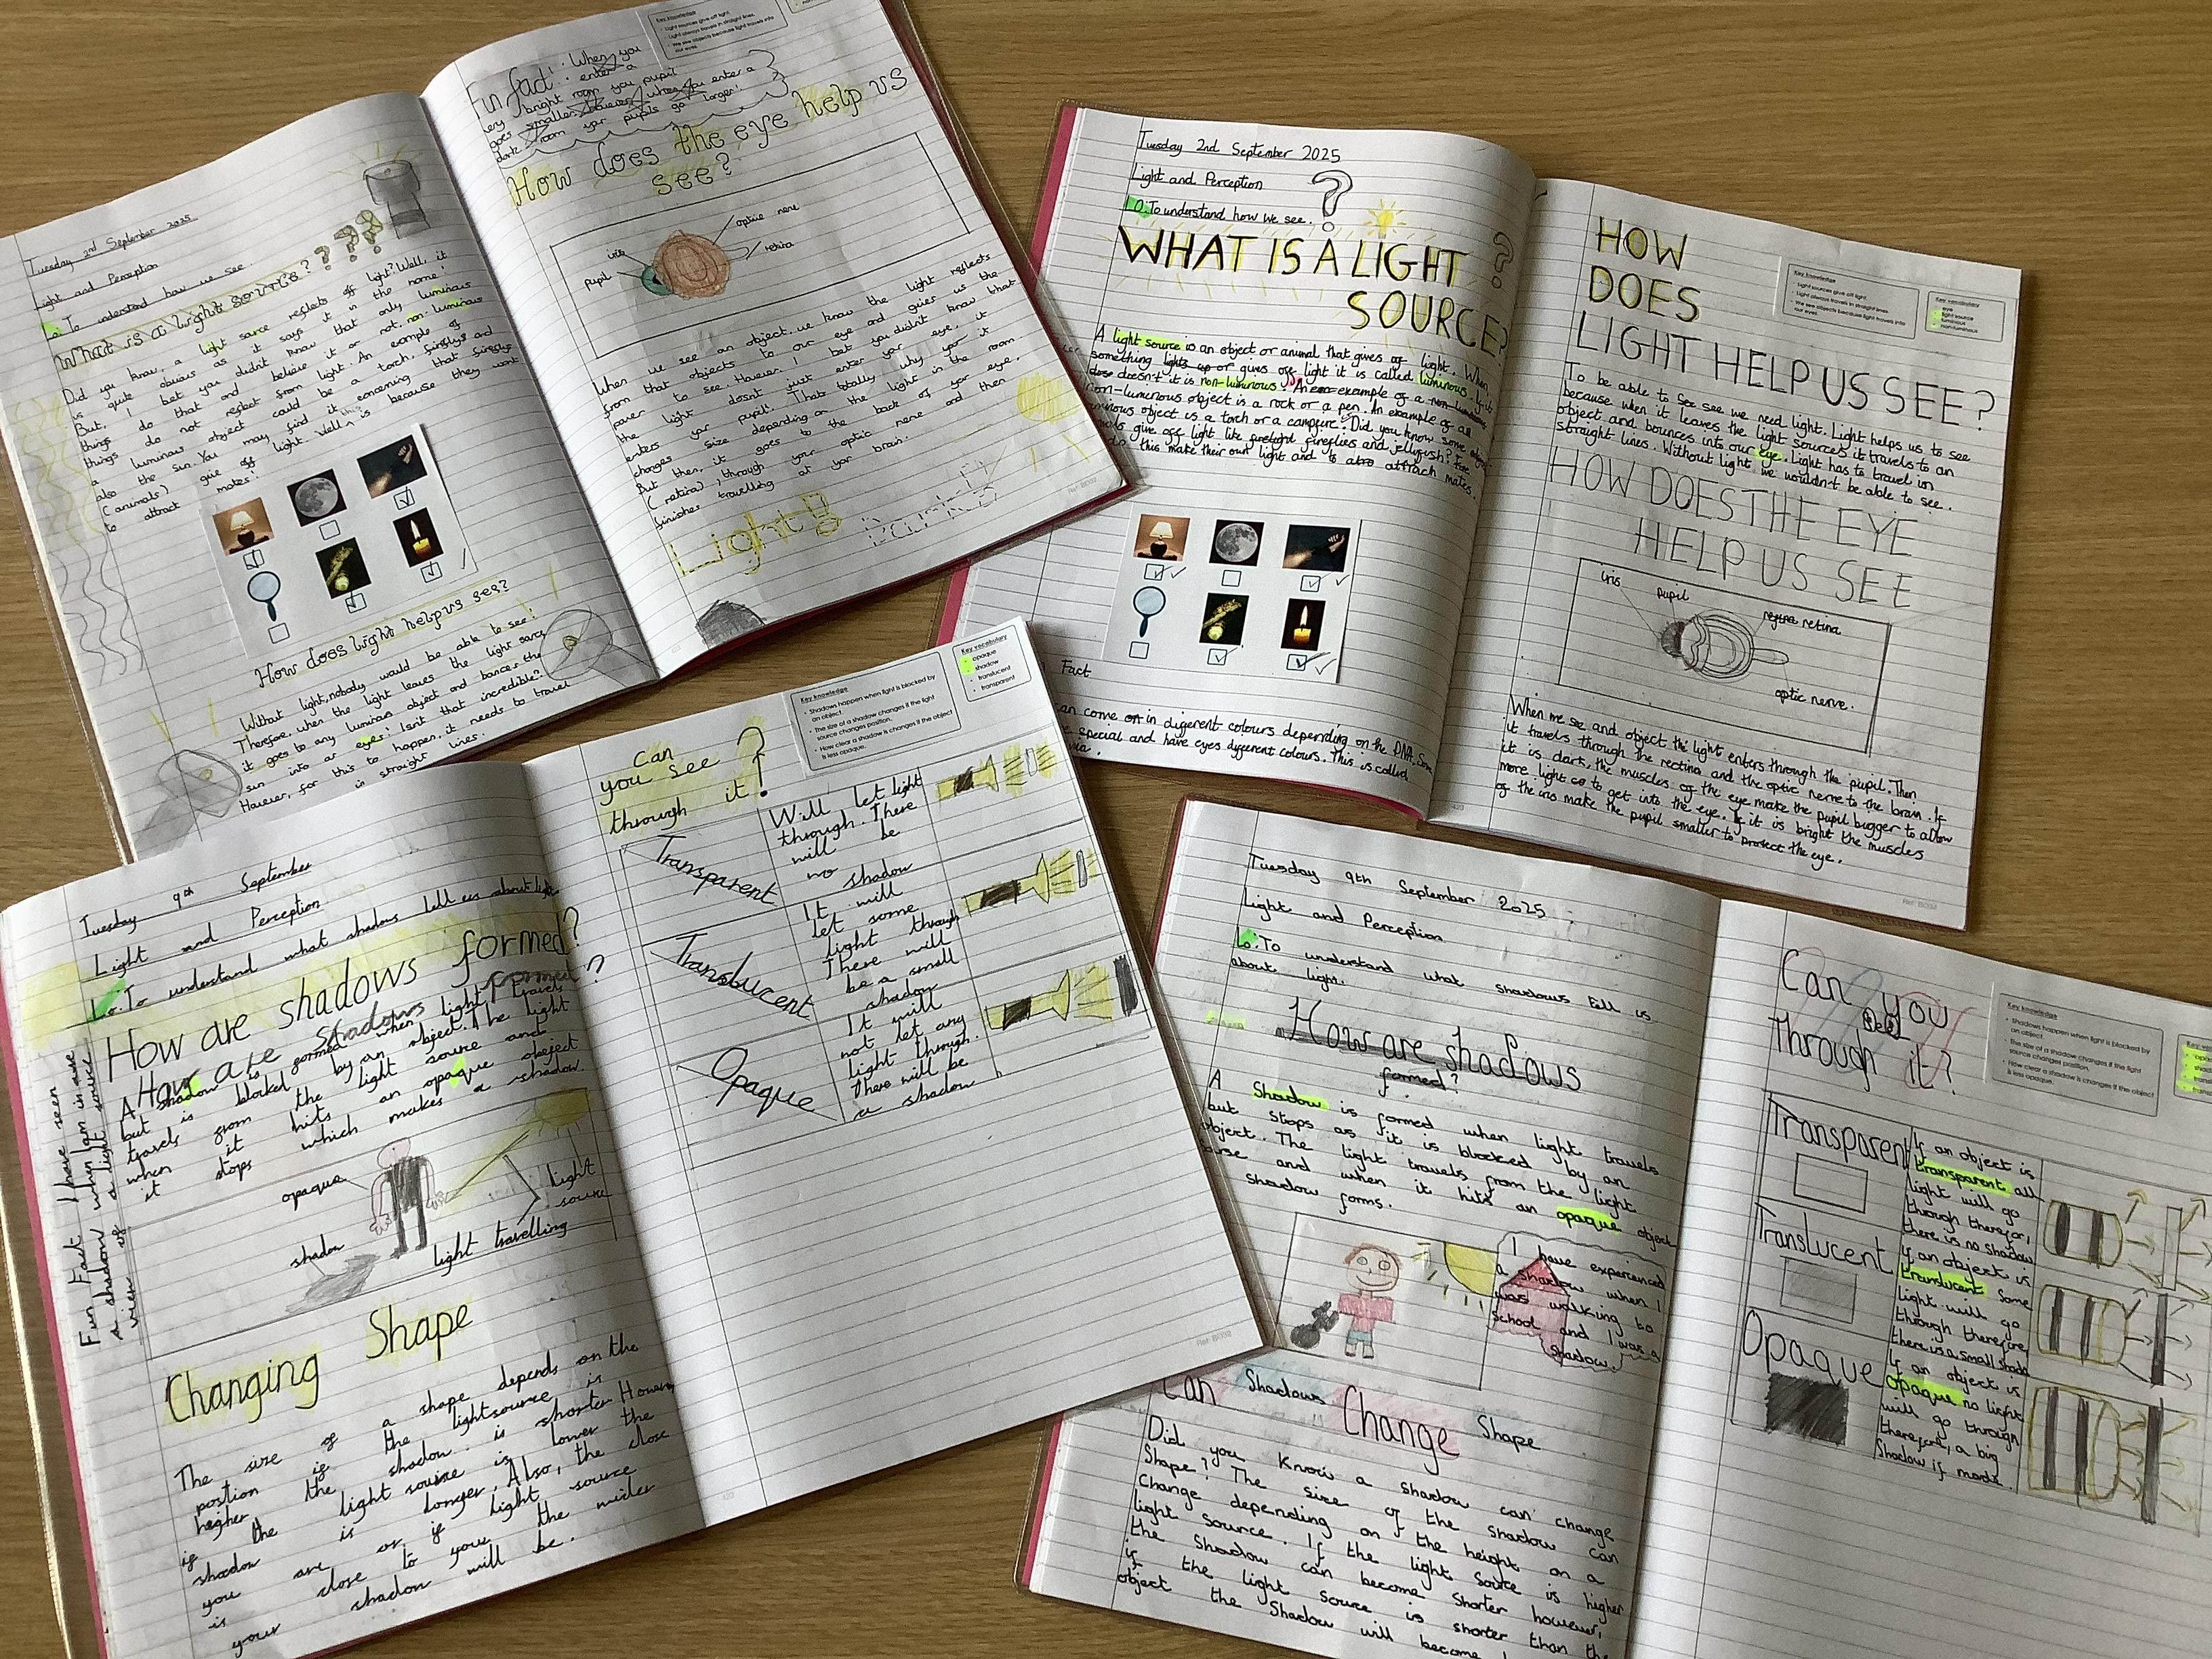 Tuesday 2nd September 2025
Light and Perception
Lo: To understand how we see.
What is a light source? ? ? ? ?
Did you know, a light sorce reflects off light? Well, it
is quite obvious as it says it in the name!
But, I bet you didn't know that only luminous
things do that and believe it or not, non-luminous
things do not reflect from light. An example of
a luminous object could be a torch, and
also the sun. You may find it concerning that
(animals) give off light. Well this is because they want
to attract mates!
How does light help us see?
Without light, nobody would be able to see!
Therefore, when the light leaves the light sorce
it goes to any luminous object and bances the
sun into ar eyes! Isn't that incredible?
However, for this to happen, it needs to travel
in straight lines.
Key knowledge
Light sources give off light.
Light always travels in straight lines.
We see objects because light travels into
our eyes.
Fun fact! When you
enter a
very bright room you pupil
goes smaller, however, when you enter a
dark room yor pupils go larger!
How does the eye help us
see?
optic nerve
iris
retina
pupil
When we see an object, we know the light reflects
from that objects to our eye and gives us the
power to see. However, I bet you didn't know that
the light doesn't just enter yor eye, it
enters yor pupil. Thats totally why yor it
changes size depending on the light in the room.
But then, it goes to the back of yor eye,
(retina), through yor optic nerve and then
finishes travelling at yor brain.
Light!
Tuesday 2nd September 2025
Light and Perception
LO: To understand how we see.
?
WHAT IS A LIGHT
SOURCE?
A light source is an object or animal that gives of light. When
something lights up or gives off light it is called luminous. If it
dose doesn't it is non-luminous. An example of a non-luminous
non-lumenous object is a rock or a pen. An example of a
luminous object is a torch or a campfire. Did you know some
give off light like fireflies and jellyfish? They
do this make their own light and to attrach mates.
Fact
can come on in different colours depending on the DNA. Some
special and have eyes different colours. This is called
HOW
DOES
LIGHT HELP US SEE?
Key knowledge
Light sources give off light.
Light always travels in straight lines.
We see objects because light travels into
our eyes.
Key vocabulary
eye
light source
luminous
non-luminous
To be able to see see we need light. Light helps us to see
because when it leaves the light sources it travels to an
object and bounces into our eye. Light has to travel in
straight lines. Without light we wouldn't be able to see.
HOW DOES THE EYE
HELP US SEE
iris
pupil
regina retina
optic nerve.
When me see and object the light enters through the pupil. Then
it travels through the rectina and the optic nerve to the brain. If
it is dark, the muscles of the eye make the pupil bigger to allow
more light to get into the eye. If it is bright the muscles
of the iris make the pupil smaller to protect the eye.
Tuesday 9th September
Light and Perception
Lo: To understand what shadows tell us about light
How are shadows formed?
How are shadows formed?
A shadow is formed when light travels
but is blocked by an object. The light
travels from the light soure and
when it hits an opaque obeject
it stops which makes a shadow.
opaque
shadow
light travelling
light
source
Fun Fact I have seen
a shadow when I am in
view of a light source
Changing Shape
The size of a shape depends on the
postion if the lightsource is
heigher the shadow is shorter. However
if the light source is lower the
shadow is longer. Also, the close
you are or if light source
is close to you the wider
your shadow will be.
Can
you see
through it?
Key knowledge
Shadows happen when light is blocked by
an object.
The size of a shadow changes if the light
source changes position.
How clear a shadow is changes if the object
is less opaque.
Key vocabulary
opaque
shadow
translucent
transparent
Transparent
Will let light
through. There
will be
no shadow
Translucent
It will
let some
light through
There will
be a small
shadow
Opaque
It will
not let any
light through.
there will be
a shadow
Ref: BC02
Tuesday 9th September 2025
Light and Perception
Lo: To understand what shadows tell us
about light.
How are shadows
formed?
A Shadow is formed when light travels
but stops as it is blocked by an
object. The light travels from the light
and when it hits an opaque object
shadow forms.
I have experienced
a shadow when I
was walking to
school and I was a
shadow.
Can Shadows Change Shape
Did you know a shadow can change
Shape? The size of the shadow can
change depending on the height on a
light source. If the light source is higher
the Shadow can become shorter however,
if the light Source is shorter than the
object the Shadow will become
Can you
see
through it?
Key knowledge
Shadows happen when light is blocked by
an object.
The size of a shadow changes if the light
source changes position.
How clear a shadow is changes if the object
is less opaque.
Transparent
If an object is
transparent all
light will go
through therefor,
there is no shadow
Translucent
if an object is
translucent some
light will go
through therefore
there is a small shado
Opaque
if an object is
opaque no light
will go through
therefore, a big
Shadow if made.